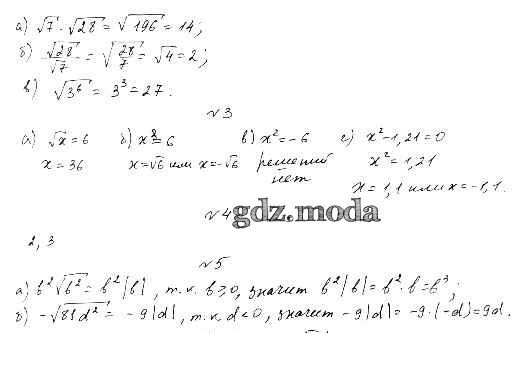 а) √7 · √28 = √196 = 14;
б) √28/√7 = √(28/7) = √4 = 2;
в) √3⁶ = 3³ = 27.
№3
а) √x = 6 б) x² = 6 в) x² = -6 г) x² - 1,21 = 0
x = 36 x = √6 или x = -√6 решений x² = 1,21
нет
x = 1,1 или x = -1,1.
№4
gdz.moda
2, 3
№5
а) b²√b² = b²|b|, т.к. b ≥ 0, значит b²|b| = b² · b = b³;
б) -√81d² = -9|d|, т.к. d < 0, значит -9|d| = -9 · (-d) = 9d.